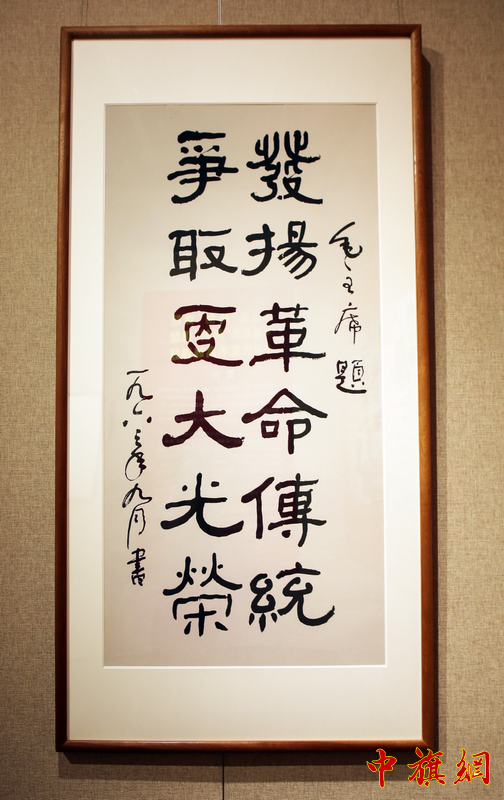 毛主席題
發揚革命傳統
爭取更大光榮
一九六三年九月書
中旗網